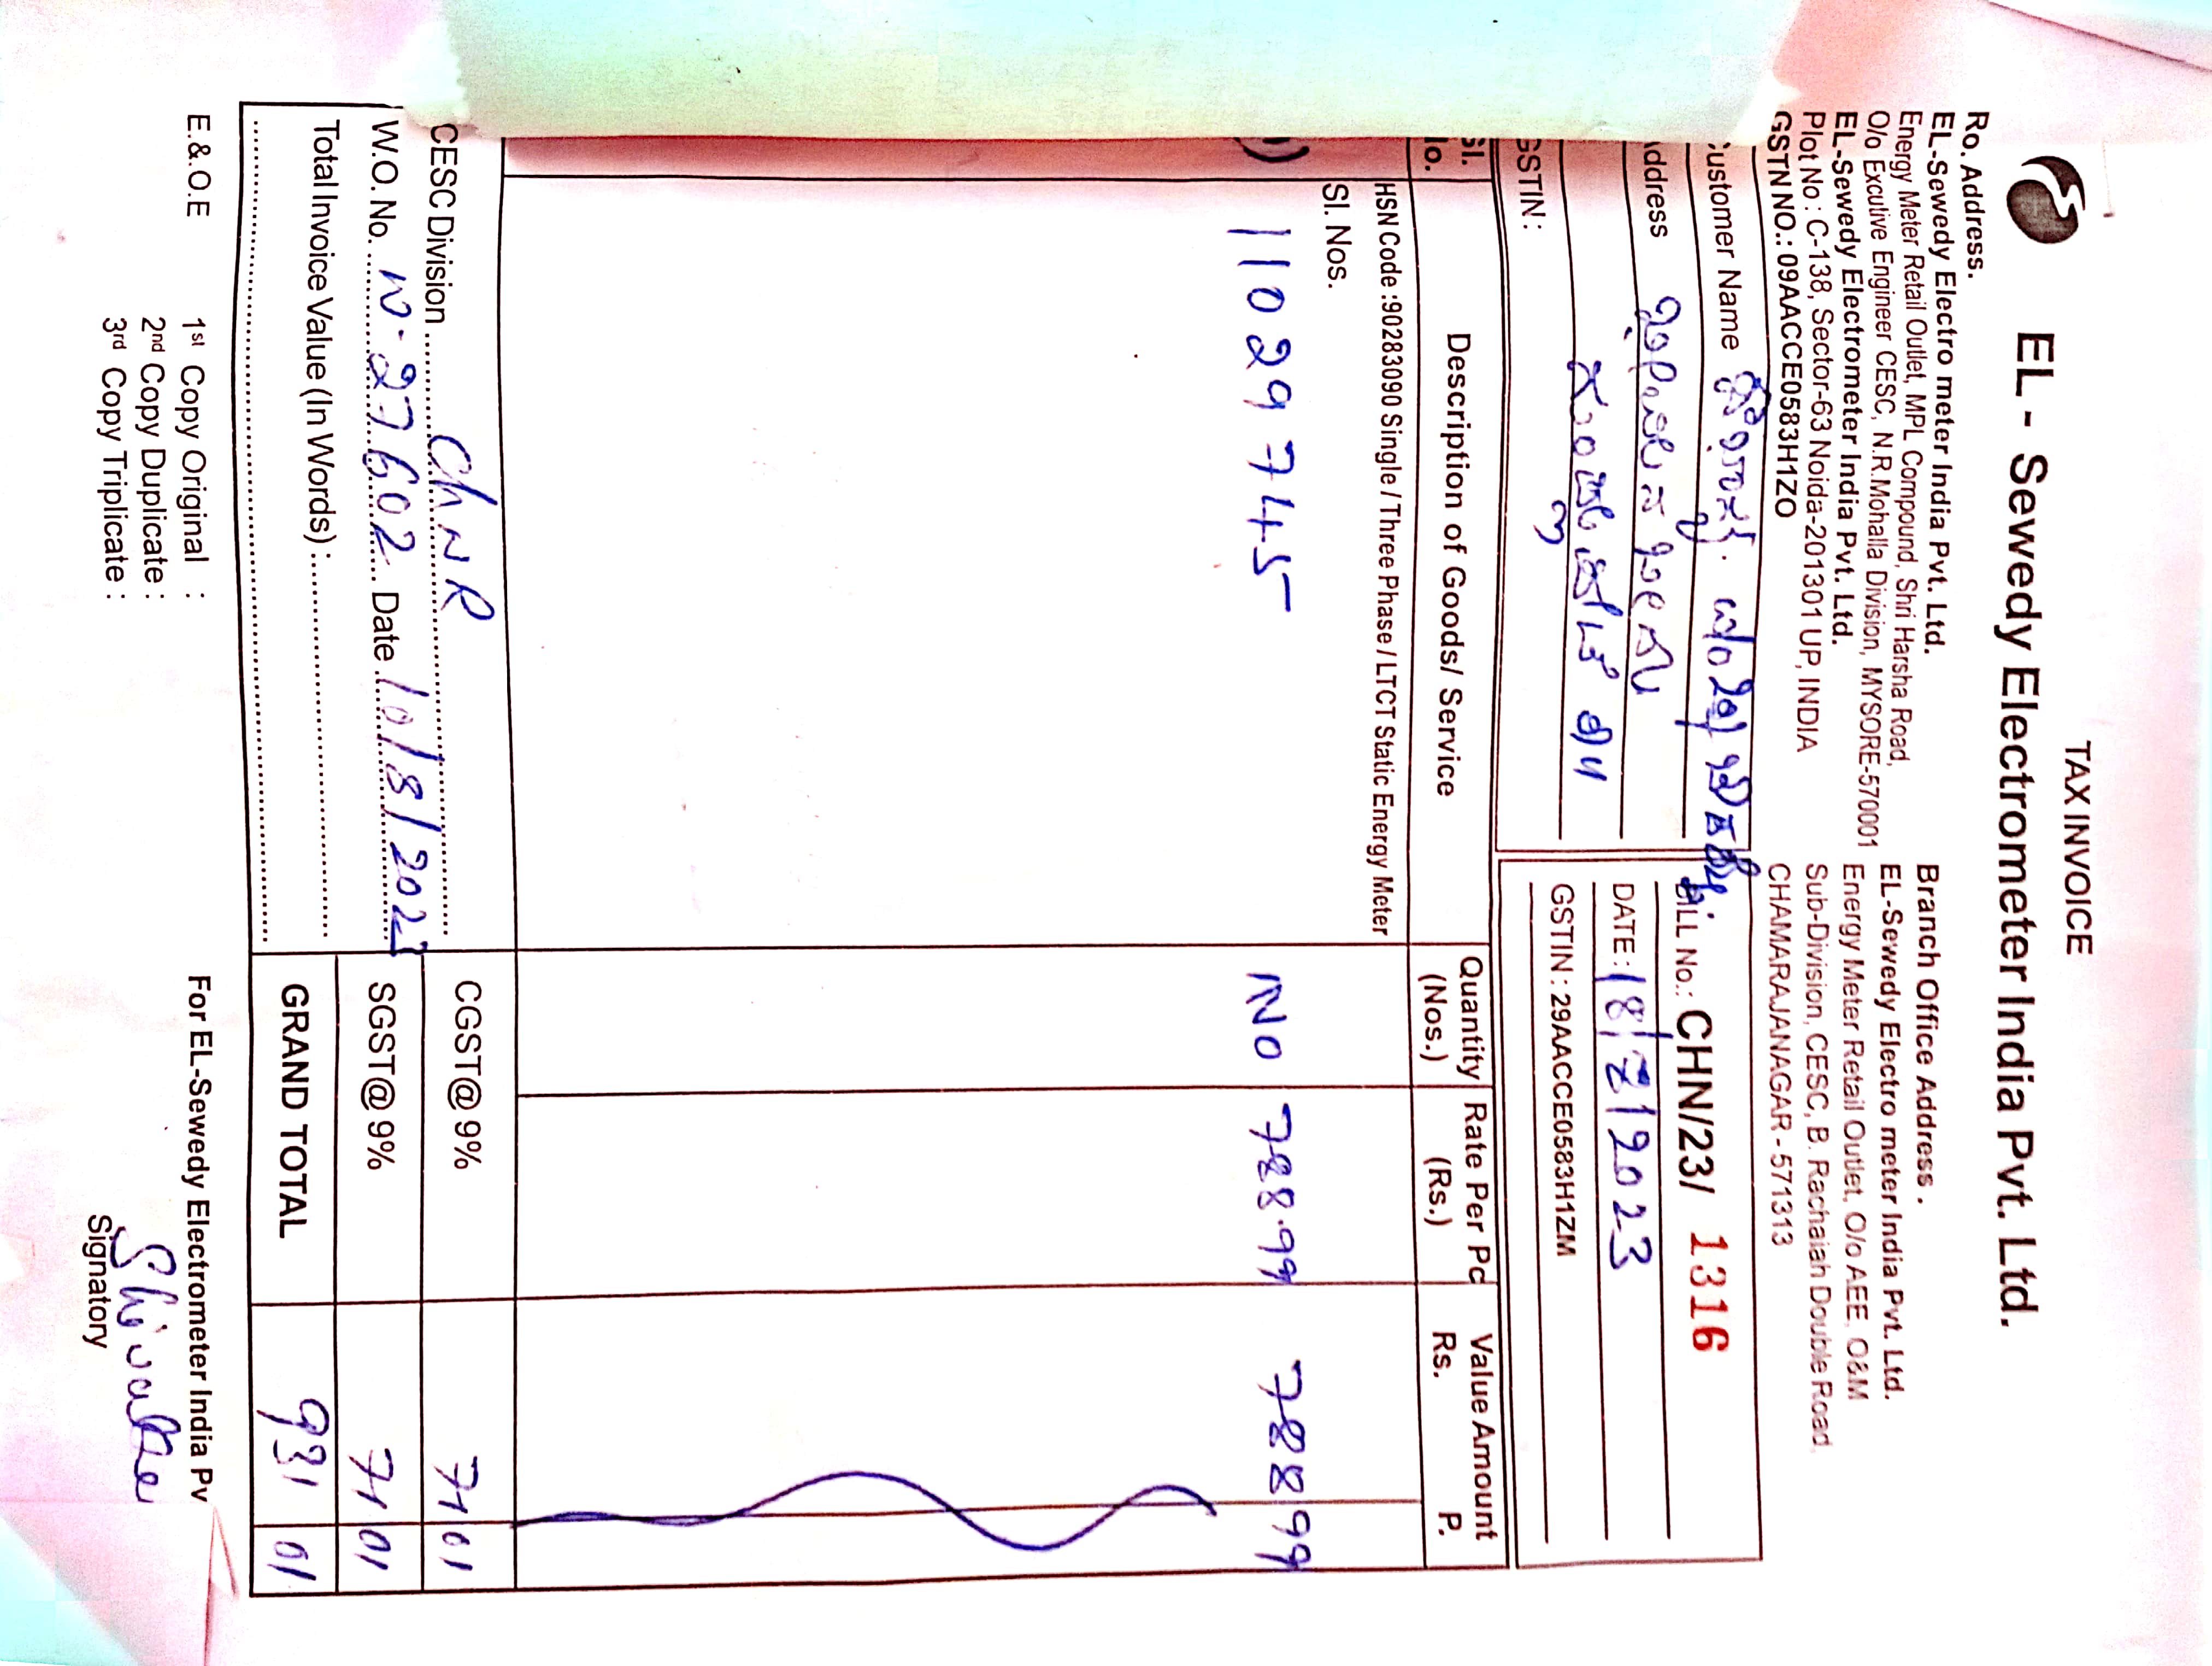 TAX INVOICE
EL - Sewedy Electrometer India Pvt. Ltd.
Ro. Address.
EL-Sewedy Electro meter India Pvt. Ltd.
Energy Meter Retail Outlet, MPL Compound, Shri Harsha Road,
O/o Excutive Engineer CESC, N.R.Mohalla Division, MYSORE-570001
EL-Sewedy Electrometer India Pvt. Ltd.
Plot No : C-138, Sector-63 Noida-201301 UP, INDIA
GSTN NO.: 09AACCE0583H1ZO
Branch Office Address .
EL-Sewedy Electro meter India Pvt. Ltd.
Energy Meter Retail Outlet, O/o AEE, O&M
Sub-Division, CESC, B. Rachaiah Double Road,
CHAMARAJANAGAR - 571313
ustomer Name
ddress
GSTIN :
BILL No.: CHN/23/ 1316
DATE : 18/
GSTIN : 29AACCE0583H1ZM
Sl. No. Description of Goods/ Service Quantity (Nos.) Rate Per Pc (Rs.) Value Amount Rs. P.
HSN Code :90283090 Single / Three Phase / LTCT Static Energy Meter
Sl. Nos.
11029745 1NO 788.99 788 99
CESC Division ChNR CGST@ 9% 71 01
W.O. No. N-27602 Date 10/8/202 SGST@ 9% 71 01
Total Invoice Value (In Words) : GRAND TOTAL 931 01
E.&.O.E
1st Copy Original :
2nd Copy Duplicate :
3rd Copy Triplicate :
For EL-Sewedy Electrometer India Pv
Signatory